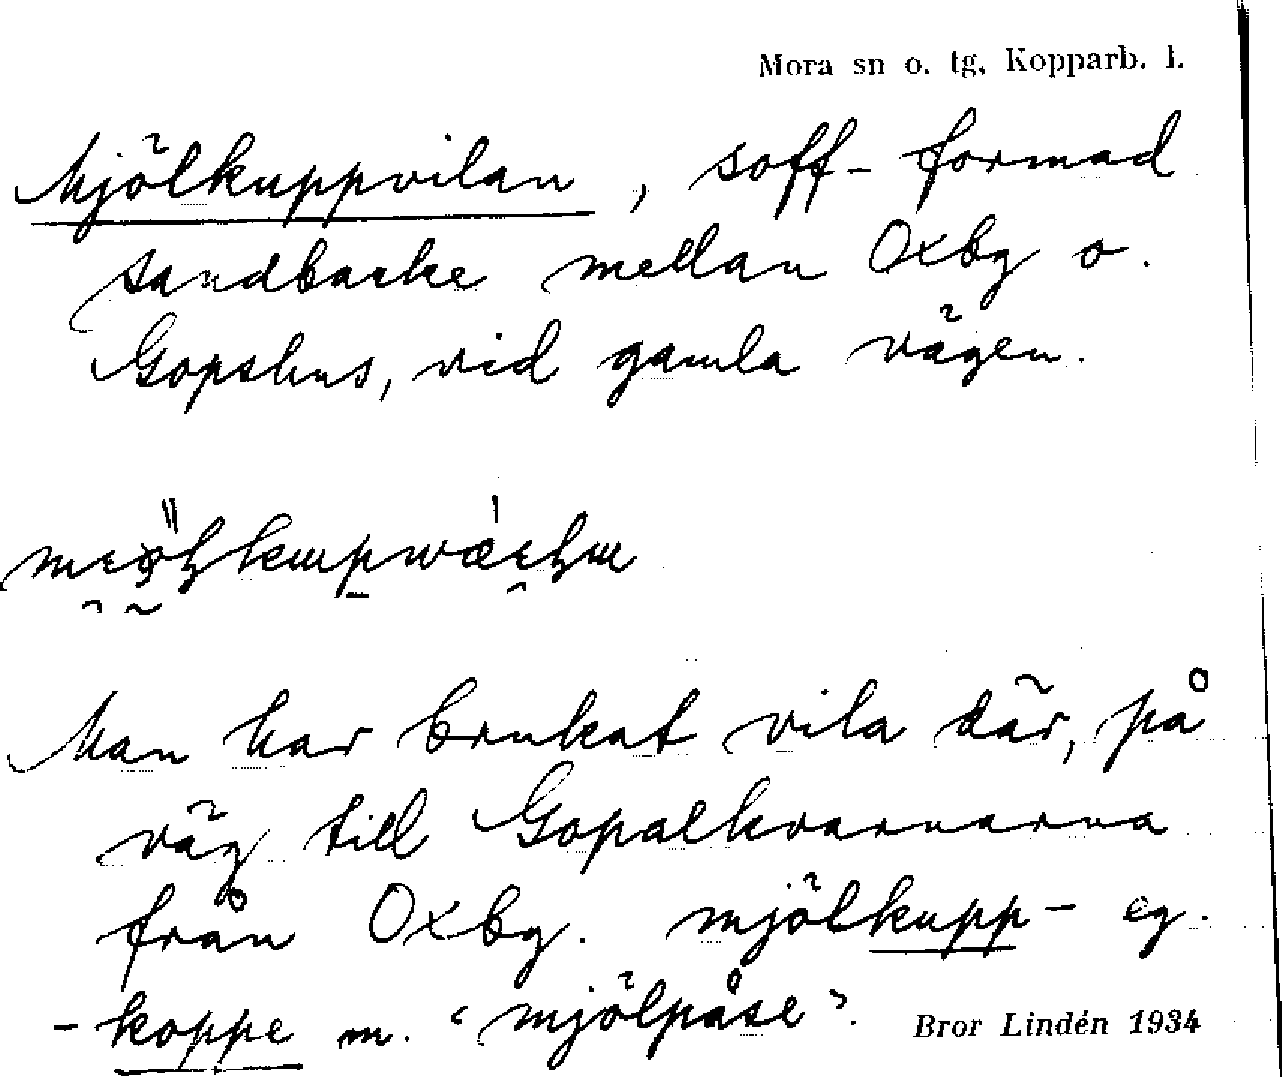 Mora sn o. tg, Kopparb. l.
Mjölkuppvilan, soff-formad
sandbacke mellan Oxbg o.
Gopshus, vid gamla vägen.
Man har brukat vila där, på
väg till Gopalkvarnarna
från Oxbg. mjölkupp- eg.
-koppe m. "mjölpåse".
Bror Lindén 1934